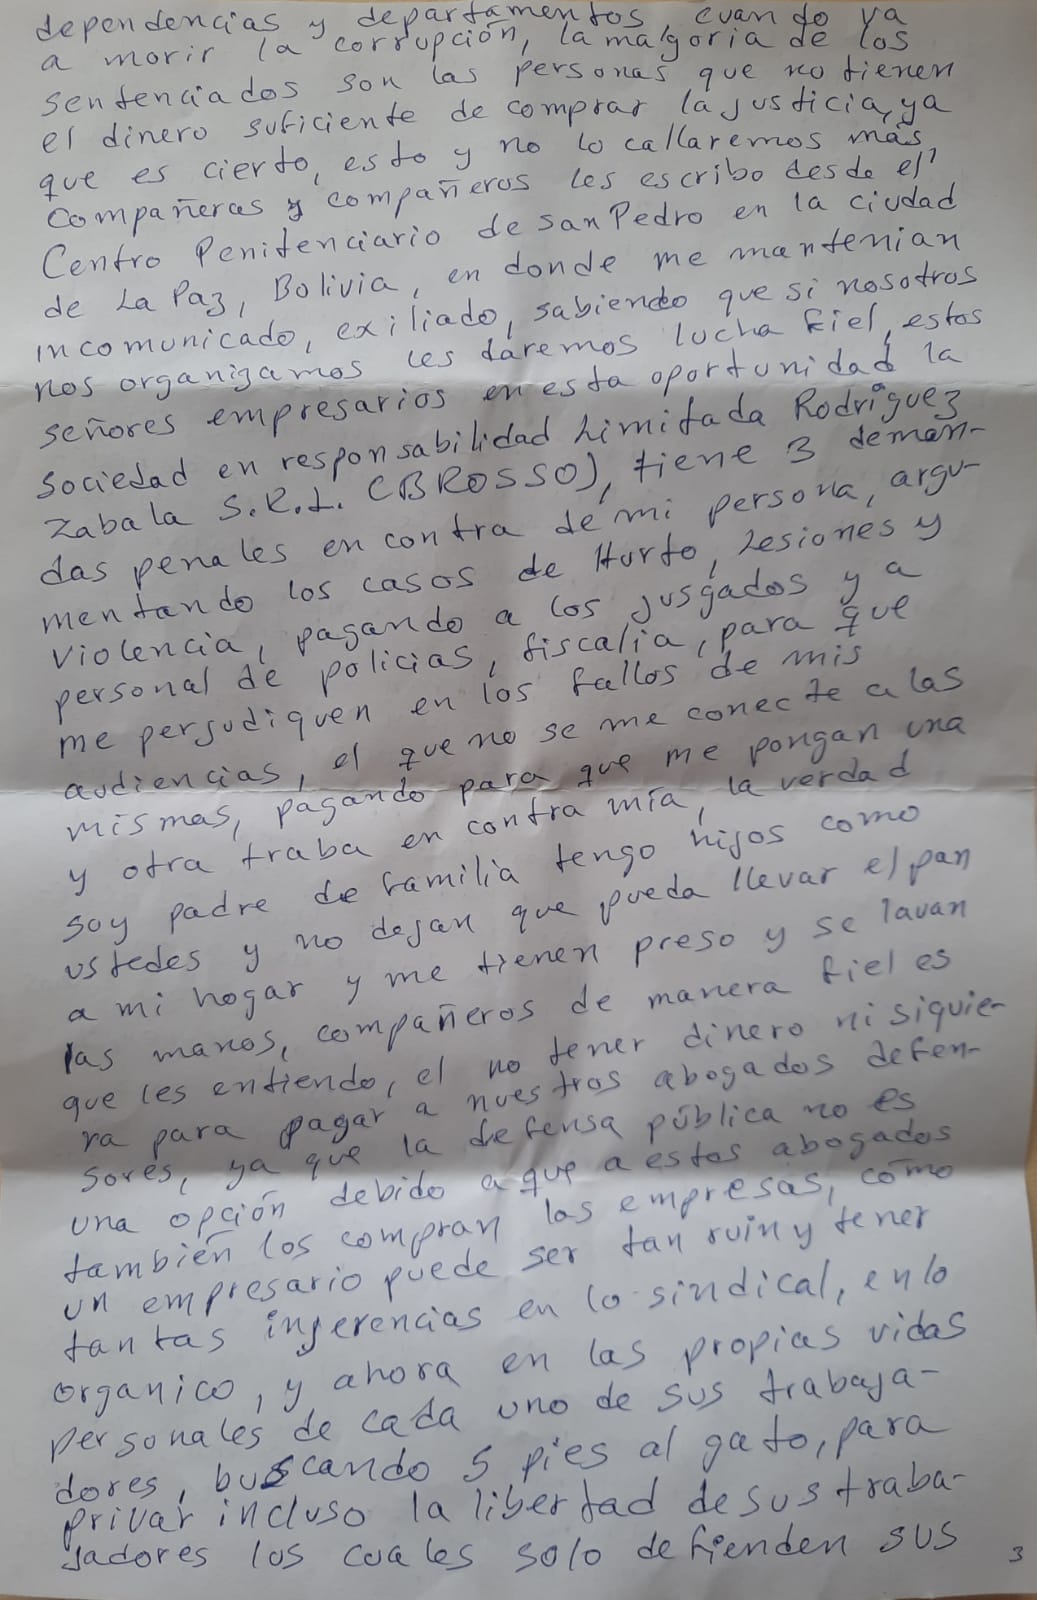 dependencias y departamentos, cuando va
a morir la corrupción, la malgoria de los
sentenciados son las personas que no tienen
el dinero suficiente de comprar la justicia, ya
que es cierto, esto y no lo callaremos más,
compañeras y compañeros les escribo desde el
Centro Penitenciario de San Pedro en la ciudad
de La Paz, Bolivia, en donde me mantenian
incomunicado, exiliado, sabiendo que si nosotros
nos organizamos les daremos lucha fiel, estos
señores empresarios en esta oportunidad la
Sociedad en responsabilidad Limitada Rodríguez
Zabala S.R.L. (BROSSO), tiene 3 deman-
das penales en contra de mi persona, argu-
mentando los casos de Hurto, Lesiones y
Violencia, pagando a los jusgados y a
personal de policias, fiscalia, para que
me perjudiquen en los fallos de mis
audiencias, el que no se me conecte a las
mismas, pagando para que me pongan una
y otra traba en contra mía, la verdad
soy padre de familia tengo hijos como
ustedes y no dejan que pueda llevar el pan
a mi hogar y me tienen preso y se lavan
las manos, compañeros de manera fiel es
que les entiendo, el no tener dinero ni siquie-
ra para pagar a nuestros abogados defen-
sores, ya que la defensa pública no es
una opción debido a que a estos abogados
también los compran las empresas, como
un empresario puede ser tan ruin y tener
tantas ingerencias en lo sindical, en lo
organico, y ahora en las propias vidas
personales de cada uno de sus trabaja-
dores, buscando 5 pies al gato, para
privar incluso la libertad de sus traba-
jadores los cuales solo defienden sus
3